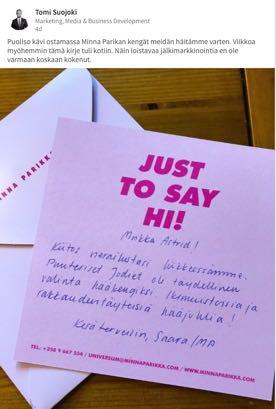 Tomi Suojoki
Marketing, Media & Business Development
4d
Puoliso kävi ostamassa Minna Parikan kengät meidän häitämme varten. Viikkoa
myöhemmin tämä kirje tuli kotiin. Näin loistavaa jälkimarkkinointia en ole
varmaan koskaan kokenut.
MINNA PARIKKA
JUST
TO SAY
HI!
Moikka Astrid!
Kiitos vierailustasi liikkeessämme.
Punteriset Jodiet oli täydellinen
valinta hääkengiksi. Ikimuistoisia ja
rakkaudentäyteisiä hääjuhlia!
Kesäterveisin, Saara/MP
TEL. +358 9 667 554 / UNIVERSUM@MINNAPARIKKA.COM / WWW.MINNAPARIKKA.COM